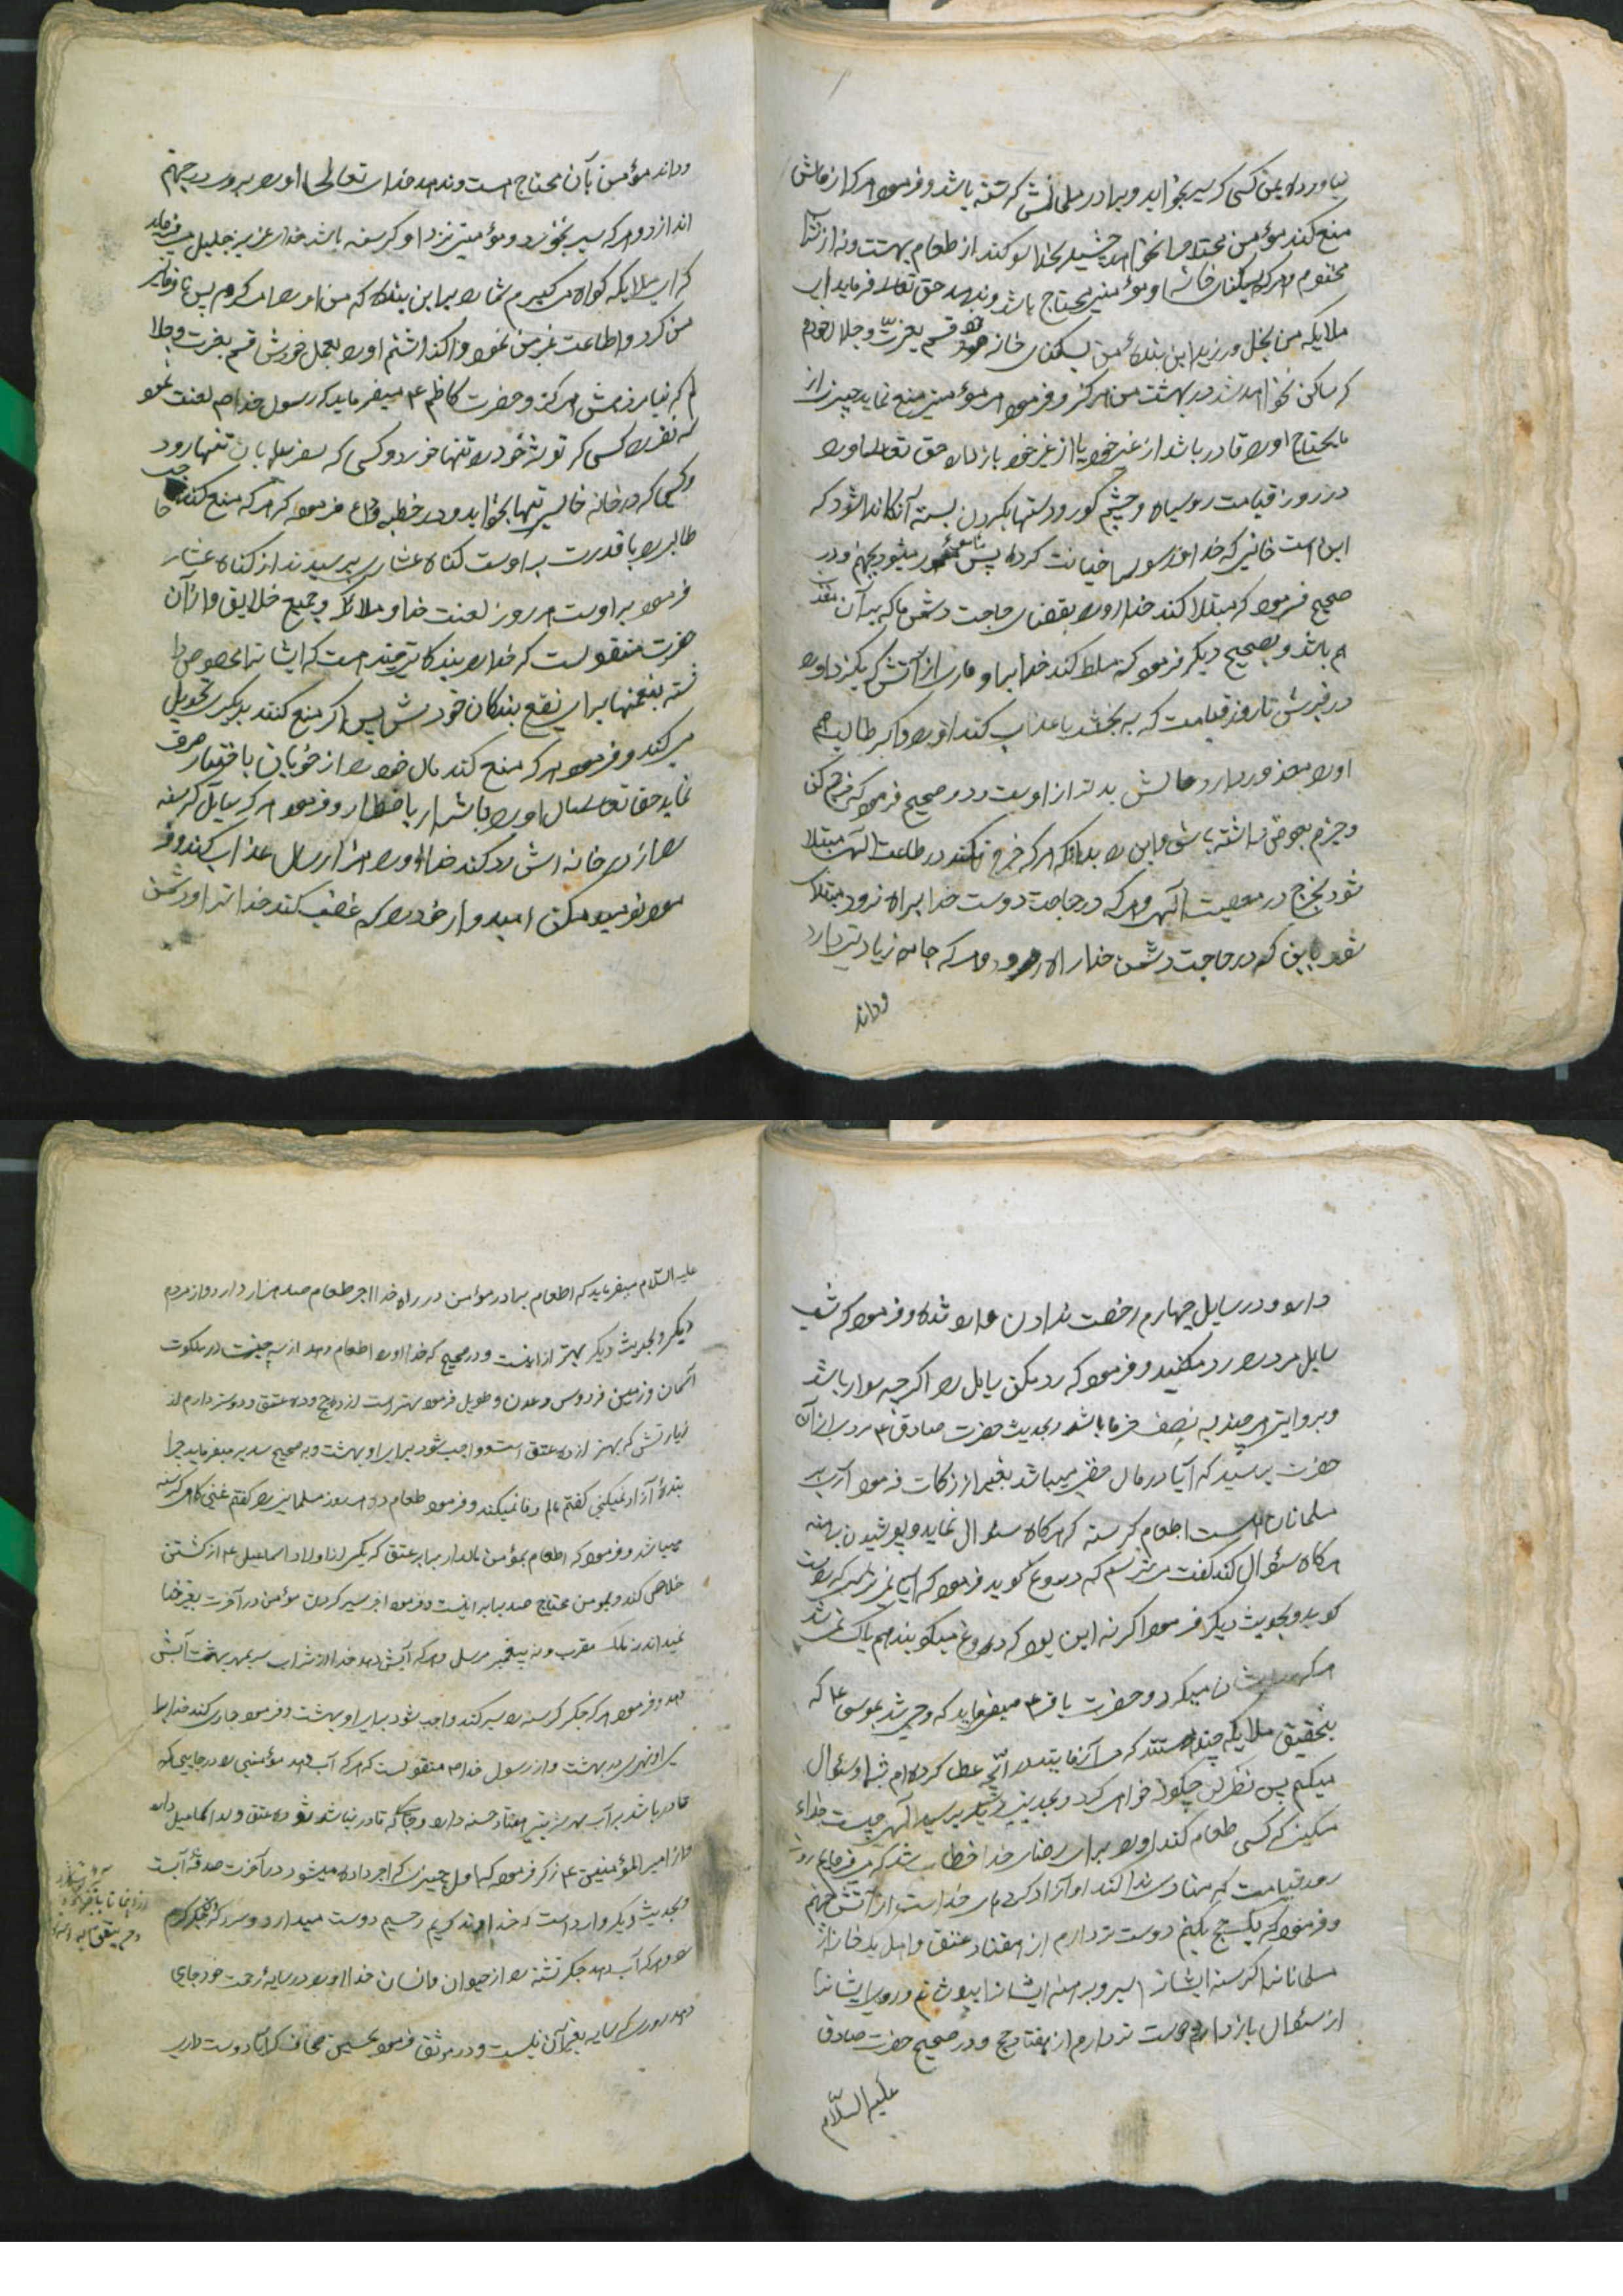 نیاورده بمن کسی که سیر بخوابد و برادر مسلمانش گرسنه باشد و فرمود هر که از مالش
منع کند مؤمن محتاج را نخواهد چشید بخدا سوگند از طعام بهشت و نه از
مختوم و هر که بسکنای خانه او مؤمنی محتاج باشد و ندهد حق تعالی فرماید ای
ملایکه من بخل ورزید این بنده من بسکنای خانه خود قسم بعزت و جلال خودم
که ساکن نخواهد شد در بهشت من هرگز و فرمود هر مؤمنی منع نماید چیزی از
مایحتاج او و قادر باشد از غیر خود یا از غیر خود باز دارد حق تعالی او را
در روز قیامت روسیاه و چشم کور و دستها بگردن بسته آنگاه ندا شود که
این است خائنی که خدا و رسول را خیانت کرده پس مأمور میشود بجهنم و در
صحیح فرمود که مبتلا کند خدا او را بقضای حاجت دشمن ما که به آن معذب
هم باشد و بصحیح دیگر فرمود که مسلط کند خدا بر او ماری از آتش که بگزد او را
در قبرش تا روز قیامت که به بخشد یا عذاب کند او را و اگر طالب هم
او را معذور دارد حالش بدتر از اوست و در صحیح فرمود که خرج کن
و جزم بعوض داشته باش و این را بدانکه هر که خرج نکند در طاعت الهی مبتلا
شود بخرج در معصیت الهی و هر که در حاجت دوست خدا براه نرود مبتلا
شود باین که در حاجت دشمن خدا راه رود و هر که جامه زیادتی دارد
و داند
و داند مؤمن بآن محتاج است و ندهد خدای تعالی او را برو در جهنم
اندازد و هر که سیر بخورد و مؤمنی نزد او گرسنه باشد خدای عزیز جلیل میفرماید
که ای ملایکه گواه میگیرم شما را بر این بنده که من او را امر کردم پس نافرمانی
من کرد و اطاعت غیر من نمود واگذاشتم او را بعمل خودش قسم بعزت و جلا
لم که نیامرزمش هرگز و حضرت کاظم ع میفرماید که رسول خدا ص لعنت نمود
سه نفر را کسی که توشه خود را تنها خورد و کسی که بسفر بیابان تنها رود
و کسی که در خانه خالی تنها بخوابد و در خطبه وداع فرمود که هر که منع کند حاجت
طالبی را با قدرت بر اوست گناه عشاری پرسیدند از گناه عشار
فرمود بر اوست هر روز لعنت خدا و ملائکه و جمیع خلایق و از آن
حضرت منقولست که خدا را بندگانی چند است که ایشان را مخصوص دا
شته بنعمتها برای نفع بندگان خودش پس اگر منع کنند بدیگری تحویل
میکند و فرمود هر که منع کند مال خود را از خوبان باختیار صرف
نماید حق تعالی مال او را باشرار باضطرار و فرمود هر که سایل گرسنه
را از در خانه اش رد کند خدا او را هزار سال عذاب کند و فر
مود نومید مکن امیدوار خود را که غضب کند خدا ترا و دشمن
دارد و در سایل چهارم رخصت ندادن وارد شده و فرمود که شب
سایل مرد را رد مکنید و فرمود که رد مکن سایل را اگر چه سوار باشد
و بروایتی هر چند به نصف خرما باشد و بحدیث حضرت صادق ع مردی از آن
حضرت پرسید که آیا در مال حقی میباشد بغیر از زکات فرمود آری بر
مسلمانان است اطعام گرسنه که هرگاه سئوال نماید و پوشیدن برهنه
هرگاه سئوال کند گفت میترسم که دروغ گوید فرمود که
گوید و بحدیث دیگر فرمود اگر نه این بود که دروغ میگویند هم پاک نمی شد
هر که رد ایشان میکرد و حضرت باقر ع میفرماید که وحی شد بموسی ع که
بتحقیق ملایکه چند هستند که می آزمایند در آنچه عطا کرده ام بتو او سئوال
میکنم پس نظر کن چگونه خواهی کرد و بحدیث دیگر پرسید الهی چیست جزاء
مسکینی که کسی طعام کند او را برای رضای خدا خطاب شد که میفرمایم
روز قیامت که منادی ندا کند او آزاد کرده ای خداست از آتش جهنم
و فرمود که یک حج بکنم دوست تر دارم از هفتاد عتق و اهل یک خانه از
مسلمانان را گرسنه ایشان را سیر و برهنه ایشان را بپوشانم و روی ایشان را
از سئوال باز دارم دوست تر دارم از هفتاد حج و در صحیح حضرت صادق
علیه السّلام
علیه السّلام میفرماید که اطعام برادر مؤمن در راه خدا اجر طعام صد هزار دارد و از مردم
دیگر و بحدیث دیگر بهتر از اینست و در صحیح که خدا او را اطعام دهد از سه جنت در ملکوت
آسمان و زمین فردوس و عدن و طوبی فرمود بهتر است از ده حج و ده عتق و دوستر دارم از
زیارتش که بهتر از ده عتق است و واجب شود برای او بهشت و به صحیح سدیر میفرماید چرا
بنده آزاد نمیکنی گفتم مالم وفا نمیکند و فرمود طعام ده هر روز مسلمانی را گفتم غنی گاهی گرسنه
میباشد و فرمود که اطعام بمؤمن مالدار برابر عتق که یکی از اولاد اسماعیل ع از کشتن
خلاص کند و بمومن محتاج صد برابر اینست و فرمود اجر سیر کردن مؤمن در آخرت بغیر خدا
نمیداند نه ملک مقرب و نه پیغمبر مرسل و هر که آبش دهد خدا از شراب سر بمهر بهشت آبش
دهد و فرمود هر که جگر گرسنه را سیر کند واجب شود برای او بهشت و فرمود جاری کند خدا برا
ی او نهری در بهشت و از رسول خدا ص منقولست که هر که آب دهد مؤمنی را در جایی که
قادر باشد بر آب بهر شربتی هفتاد حسنه دارد و جائی که قادر نباشد ثواب ده عتق ولد اسماعیل دارد
و از امیر المؤمنین ع ذکر فرمود که اول چیزی که اجر داده میشود در آخرت صدقه آبست
و بحدیث دیگر وارد است خداوند کریم رحیم دوست میدارد سرد کردن جگر گرم
را و هر که آب دهد جگر تشنه را از حیوان و انسان خدا او را در سایه رحمت خود جای
دهد روزی که سایه بغیر آن نیست و در موثق فرمود بحسین صحاف که آیا دوست داری